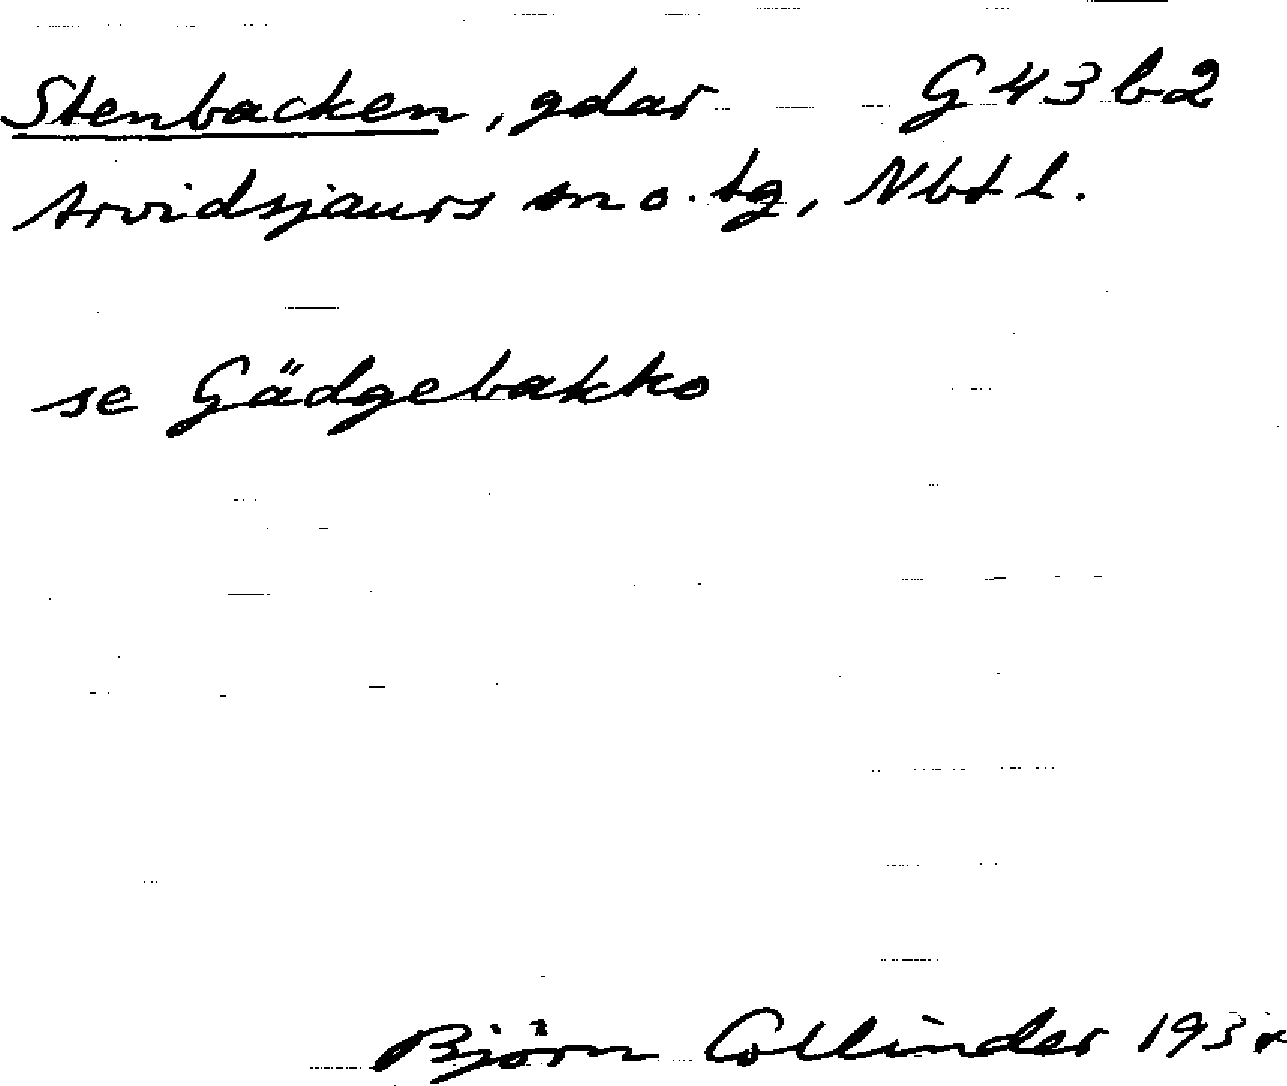 Stenbacken, gdar G43b2
Arvidsjaurs sn o. tg, Nbtl.
se Gädgebakko
Björn Collinder